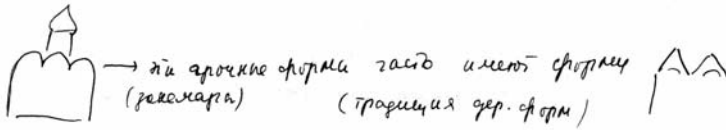 → эти арочные формы часто имеют форму
(закомары) (традиция дер. форм)